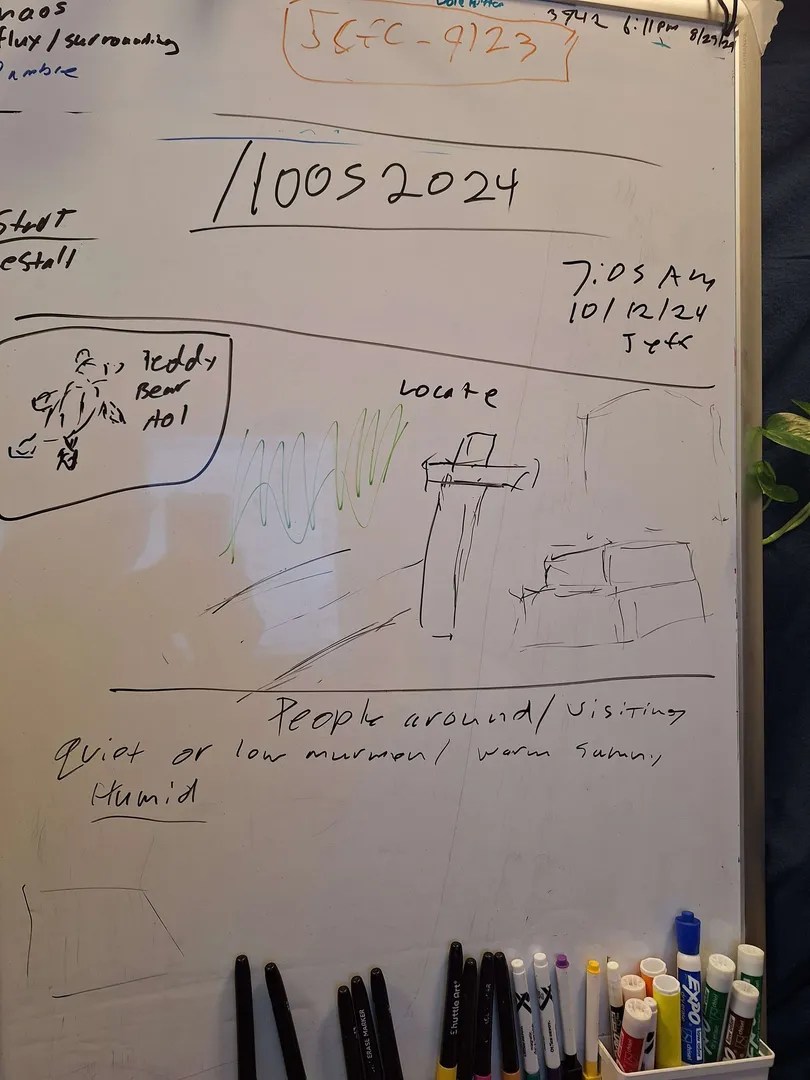 haos
flux/surrounding
ambre
JCFC-9123
3942 6:11pm 8/29/24
/1005 2024
Start
estall
7:05 Am
10/12/24
Jeff
Teddy
Bear
AOl
Locate
People around/visiting
Quiet or low murmer/ warm sunny
Humid
EXPO
ERASE MARKER
Shuttle Art